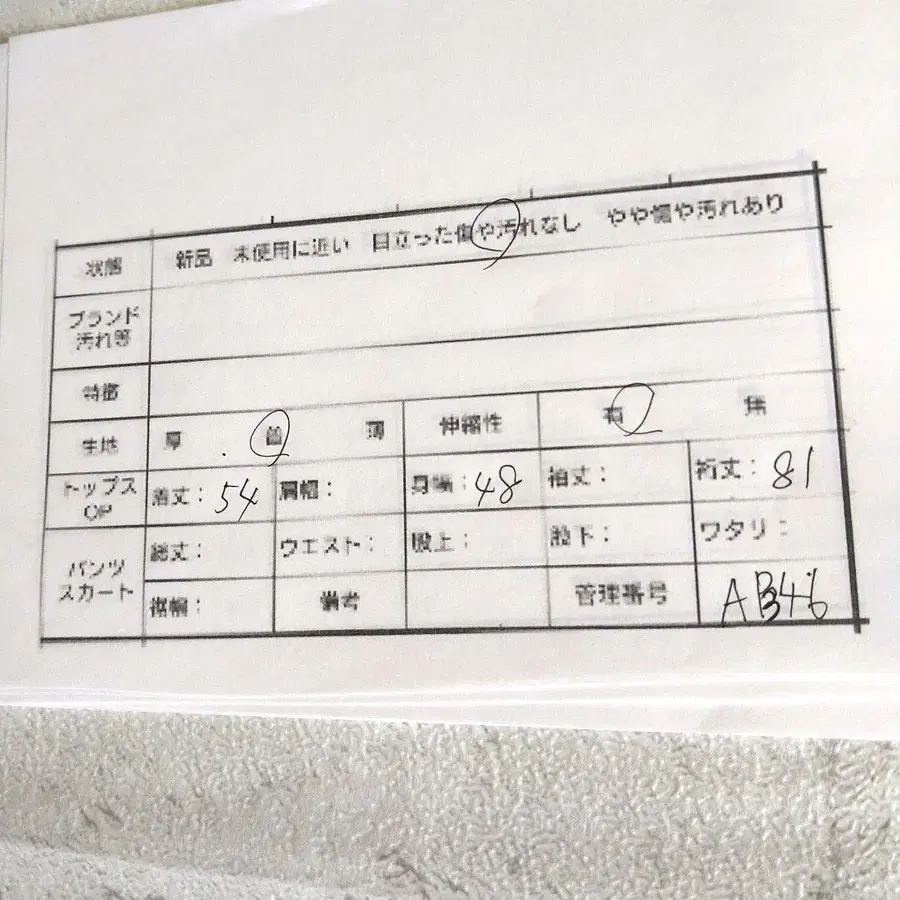 状態 新品 未使用に近い 目立った傷や汚れなし やや傷や汚れあり
ブランド
汚れ等
特徴
生地 厚 普 薄 伸縮性 有 無
トップス
OP 着丈: 54 肩幅: 身幅: 48 袖丈: 裄丈: 81
パンツ
スカート 総丈: ウエスト: 股上: 股下: ワタリ:
裾幅: 備考 管理番号 AB346